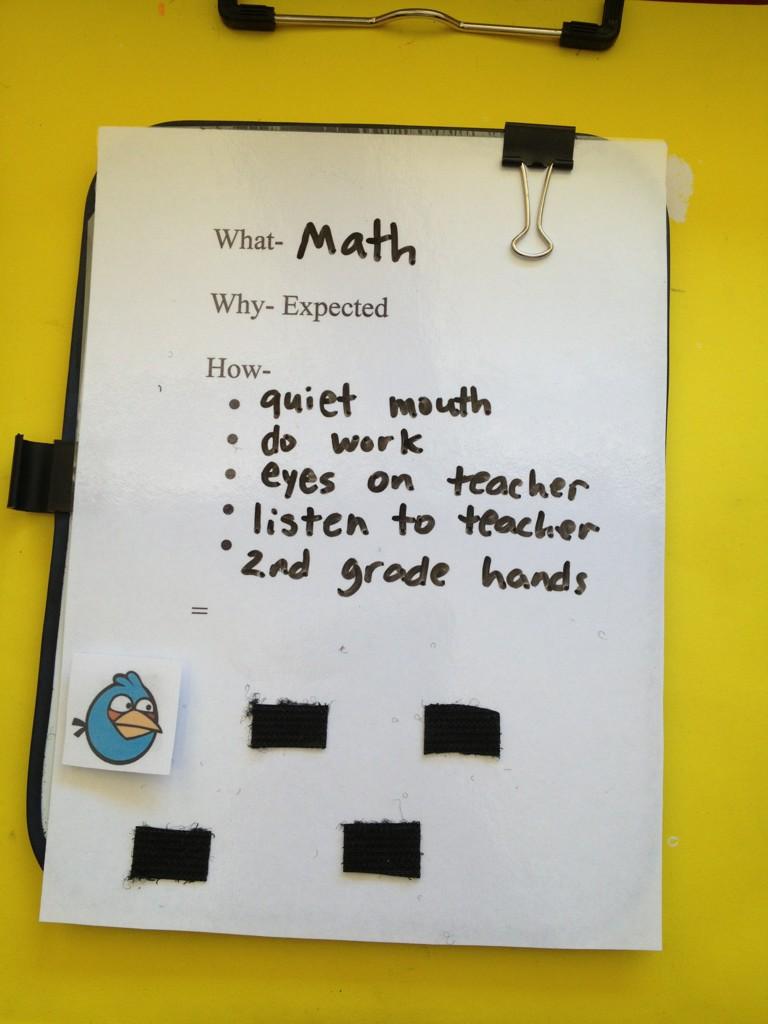 What- Math
Why- Expected
How-
• quiet mouth
• do work
• eyes on teacher
• listen to teacher
• 2nd grade hands
=